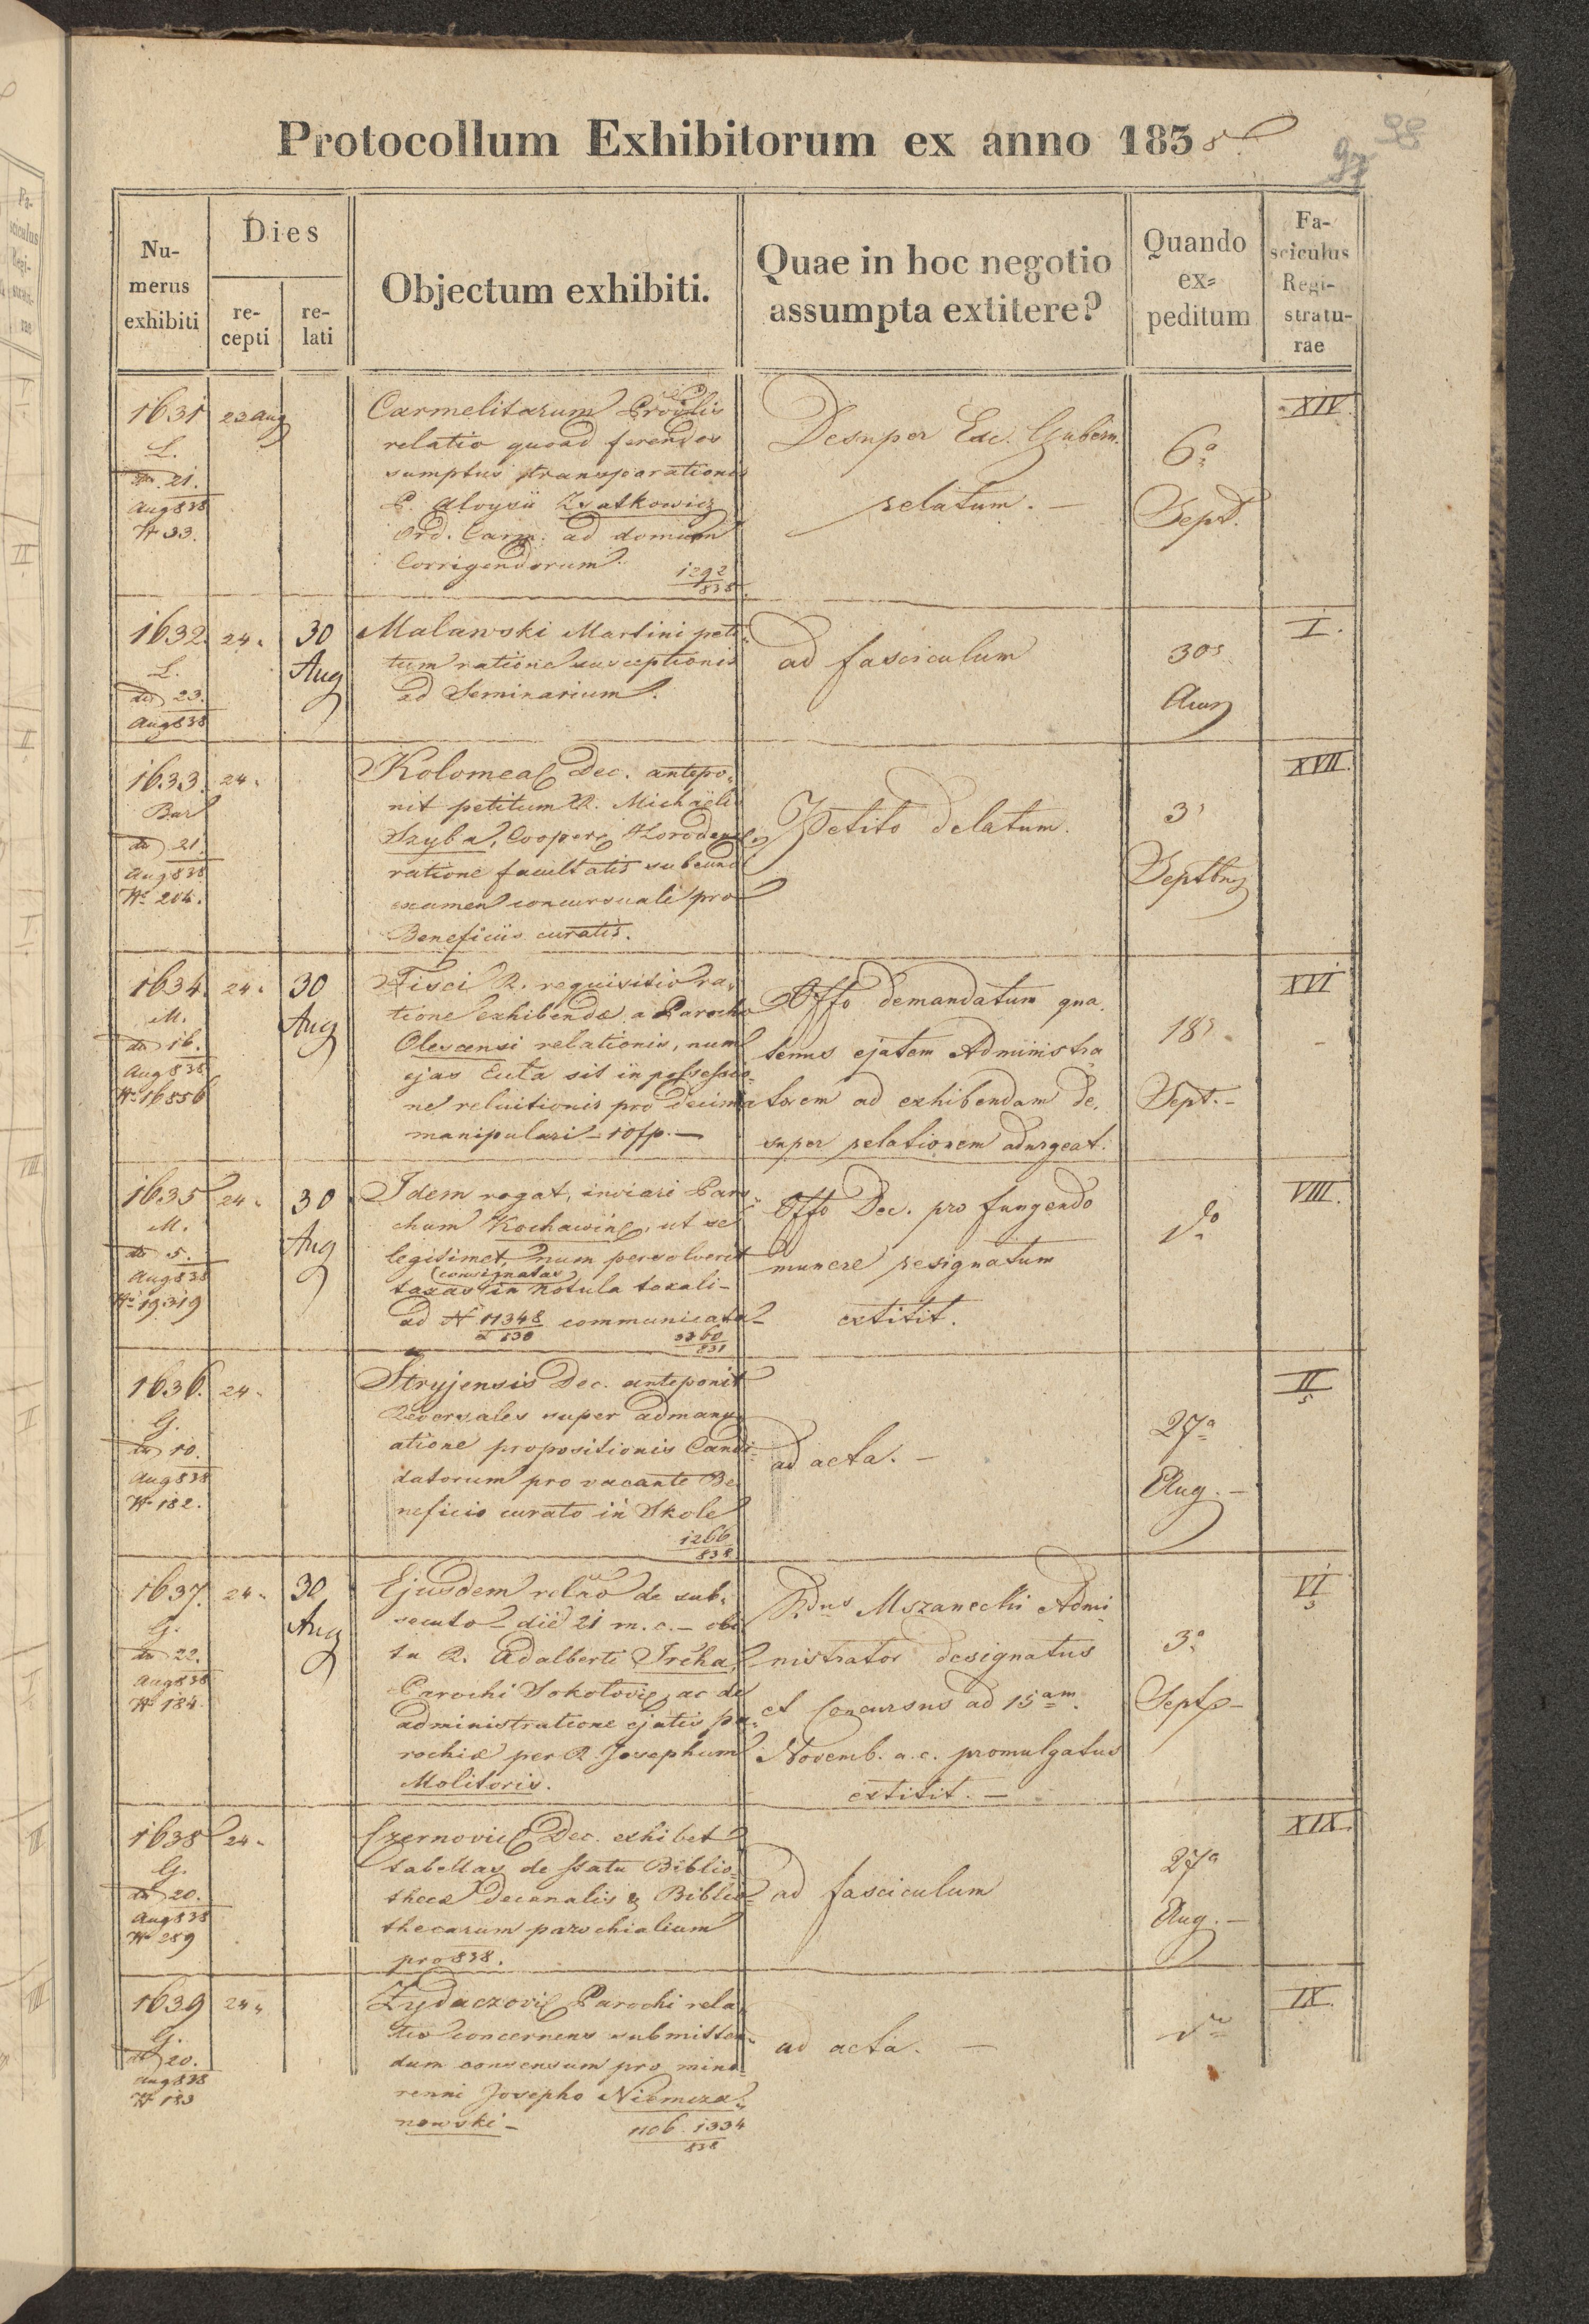 Protocollum Exhibitorum ex anno 1838
97 98
Nu-
merus
exhibiti
Dies
re-
cepti
re-
lati
Objectum exhibiti.
Quae in hoc negotio
assumpta extitere?
Quando
ex=
peditum
Fa-
sciculus
Regi-
stratu-
rae
1631
L.
21.
Aug 838
Nº 33.
23 Aug
Carmelitarum Provlis
relatio quoad ferendos
sumptus transporationis
P. Aloysii
Ord. Carm. ad domum
Corrigendorum.
1292
838
Desuper Exc. Gubern.
relatum. –
6a
Sept.
XIV.
1632.
L.
dto 23.
Aug 838
24.
30
Aug
Malawski Martini peti-
tum ratione susceptionis
ad Seminarium.
ad fasciculum
30
Aug
I.
1633.
Bar
dto 21.
Aug 838
Nº 204.
24.
Kolomea Dec. antepo-
nit petitum R. Michaëlis
Szyba, Cooper.
ratione facultatis subeundi
examen concursuale pro
Beneficiis curatis.
Petito delatum.
3
XVII.
1634.
M.
dto 16.
Aug 838
Nº 16856
24.
30
Aug
Fisci R. requisitio ra-
tione exhibendae a Parocho
Olescensi relationis, num
ejas Ecta sit in possessio-
ne reluitionis pro decima
manipulari – 10 fp. –
Offo demandatum qua-
tenus ejatem Administra
torem ad exhibendam de-
super relationem adurgeat.
18
Sept. –
XVI
1635
M.
dto 5.
Aug 838
Nº 19319
24.
30
Aug
Idem rogat, inviari Paro-
chum Kochawin, ut se
legitimet, num persolverit
(consignatas)
taxas in Notula taxali
ad Nº 11348 communicata
838
Offo Dec. pro fungendo
munere resignatum
extitit.
do
VIII.
1636.
G.
dto 10.
Aug 838
Nº 182.
24.
Stryjensis Dec. anteponit
Reversales super admanu-
atione propositionis Candi-
datorum pro vacante Be
neficio curato in Skole
1266
838
ad acta. –
27a
Aug. –
II
5
1637.
G.
dto 22.
Aug 838
Nº 184.
24.
30
Aug
Ejusdem relao de sub-
secuto die 21 m. c. – obi
tu R. Adalberti Treha,
Parochi Sokolovi, ac de
administratione ejatis pa-
rochiae per R. Josephum
Molitoris.
Rdus Mszanecki Admi-
nistrator designatus
et Concursus ad 15am
Novemb. a. c. promulgatus
extitit. –
3a
Sept. –
VI
3
1638
G.
dto 20.
Aug 838
Nº 289
24.
Czernovic Dec. exhibet
tabellas de statu Biblio-
thecae decanalis & Biblio
thecarum parochialium
pro 838.
ad fasciculum
27a
Aug. –
XIX.
1639
G.
dto 20.
Aug 838
Nº 183
24.
Zydaczovi Parochi rela
tio concernens submitten-
dum consensum pro mino-
renni Josepho Niemcza-
nowski –
1106. 1334
838
ad acta. –
IX.